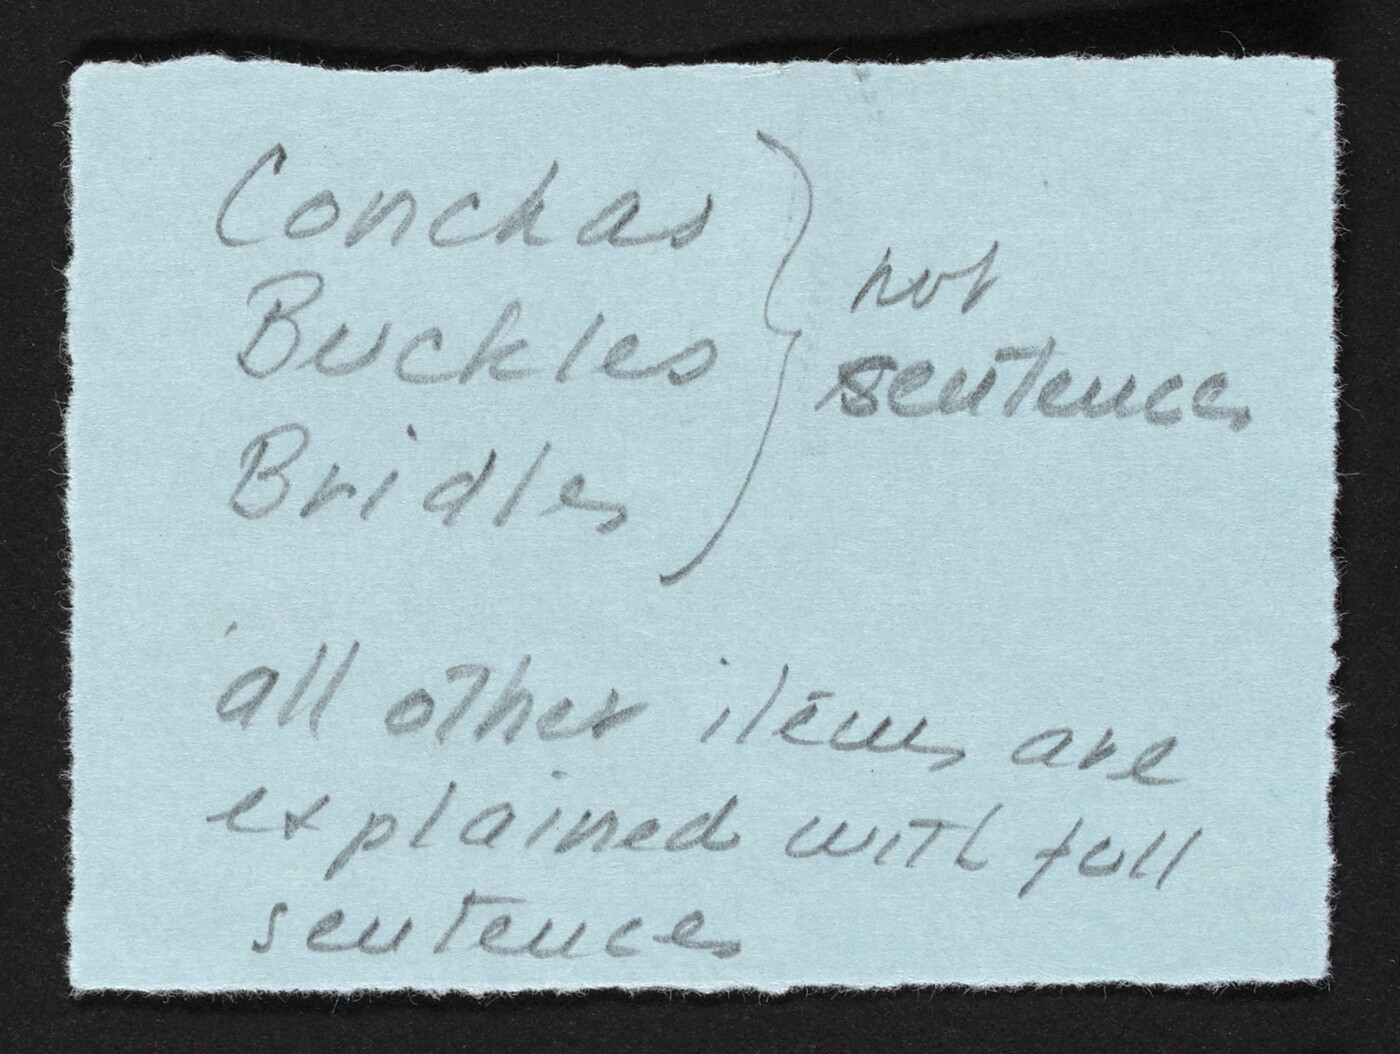 Conchas
Buckles
Bridles
not
sentences
all other items are
explained with full
sentences